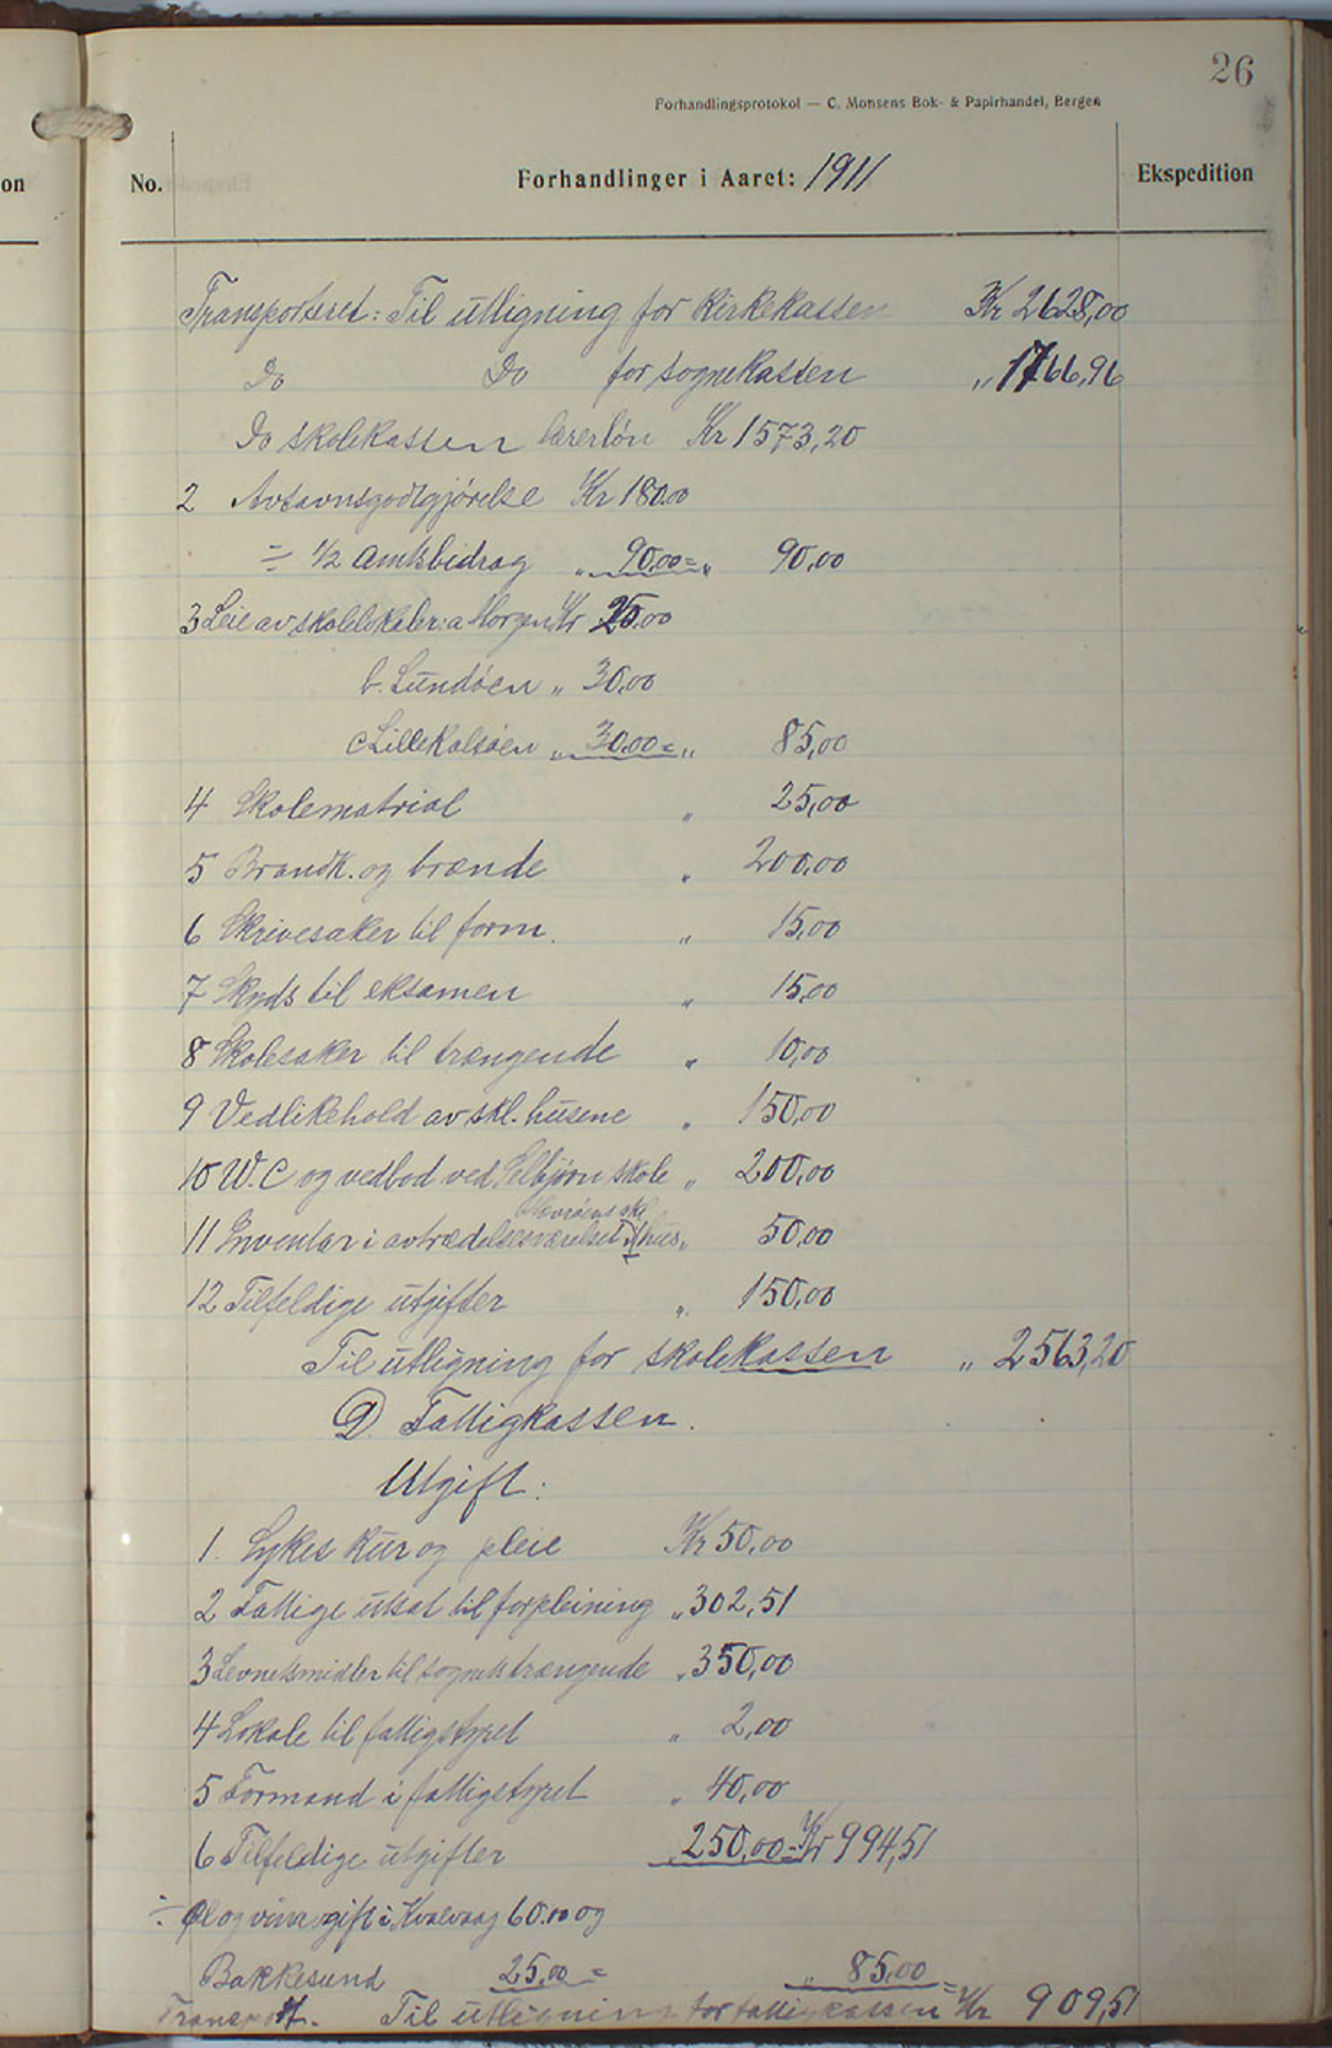 26
Forhandlingsprotokol — C. Monsens Bok- & Papirhandel, Bergen
on
No. Forhandlinger i Aaret: 1911 Ekspedition
Transporteret: Til utligning for Kirkekassen Kr 2628,00
Do Do for sognekassen „ 1766,96
Do skolekassen lærerløn Kr 1573,20
2 Avsavnsgodtgjørelse Kr 180.00
÷ 1/2 Amtsbidrag „ 90,00 = „ 90,00
3 Leie av skolelokaler: a Horgen Kr 25.00
b. Lundøen „ 30,00
c Lillekalsøen „ 30,00 = „ 85,00
4 Skolematrial „ 25,00
5 Brandk. og brænde „ 200,00
6 Skrivesaker til form. „ 15,00
7 Skyds til eksamen „ 15,00
8 Skolesaker til trængende „ 10,00
9 Vedlikehold av skl. husene „ 150,00
10 W.C og vedbod ved Selbjørn skole „ 200,00
11 Inventar i avtrædelsesværelset i hus „ 50,00
12 Tilfeldige utgifter „ 150,00
Til utligning for skolekassen „ 2563,20
D. Fattigkassen.
Utgift:
1. Sykes kur og pleie Kr 50,00
2 Fattige utsat til forpleining „ 302,51
3 Levnetsmidler til sognets trængende „ 350,00
4 Lokale til fattigstyret „ 2,00
5 Formand i fattigstyret „ 40,00
6 Tilfeldige utgifter 250,00 = Kr 994,51
÷ Øl og vinavgift i Kvalvaag 60.00 og
Bakkesund 25,00 = „ 85,00
Transport. Til utligning for fattigkassen = Kr 909,51